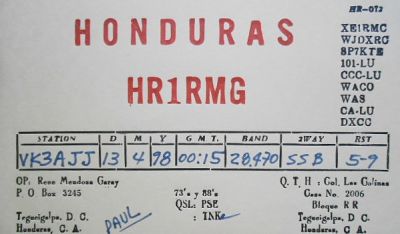 HR-073
HONDURAS
XE1RMC
WJDXRC
8P7KTE
101-LU
CCC-LU
WACO
WAS
CA-LU
DXCC
HR1RMG
STATION D M Y G M T. BAND 2WAY RST
VK3AJJ 13 4 98 00:15 28,470 SSB 5-9
OP: Rene Mendosa Garay
P. O Box 3245
Tegucigalpa, D. C.
Honduras, C. A.
PAUL
73's y 88's
QSL: PSE
: TNKe
Q. T. H : Col. Las Colinas
Casa No. 2006
Bloque R R
Tegucigalpa, D. C.
Honduras, C. A.